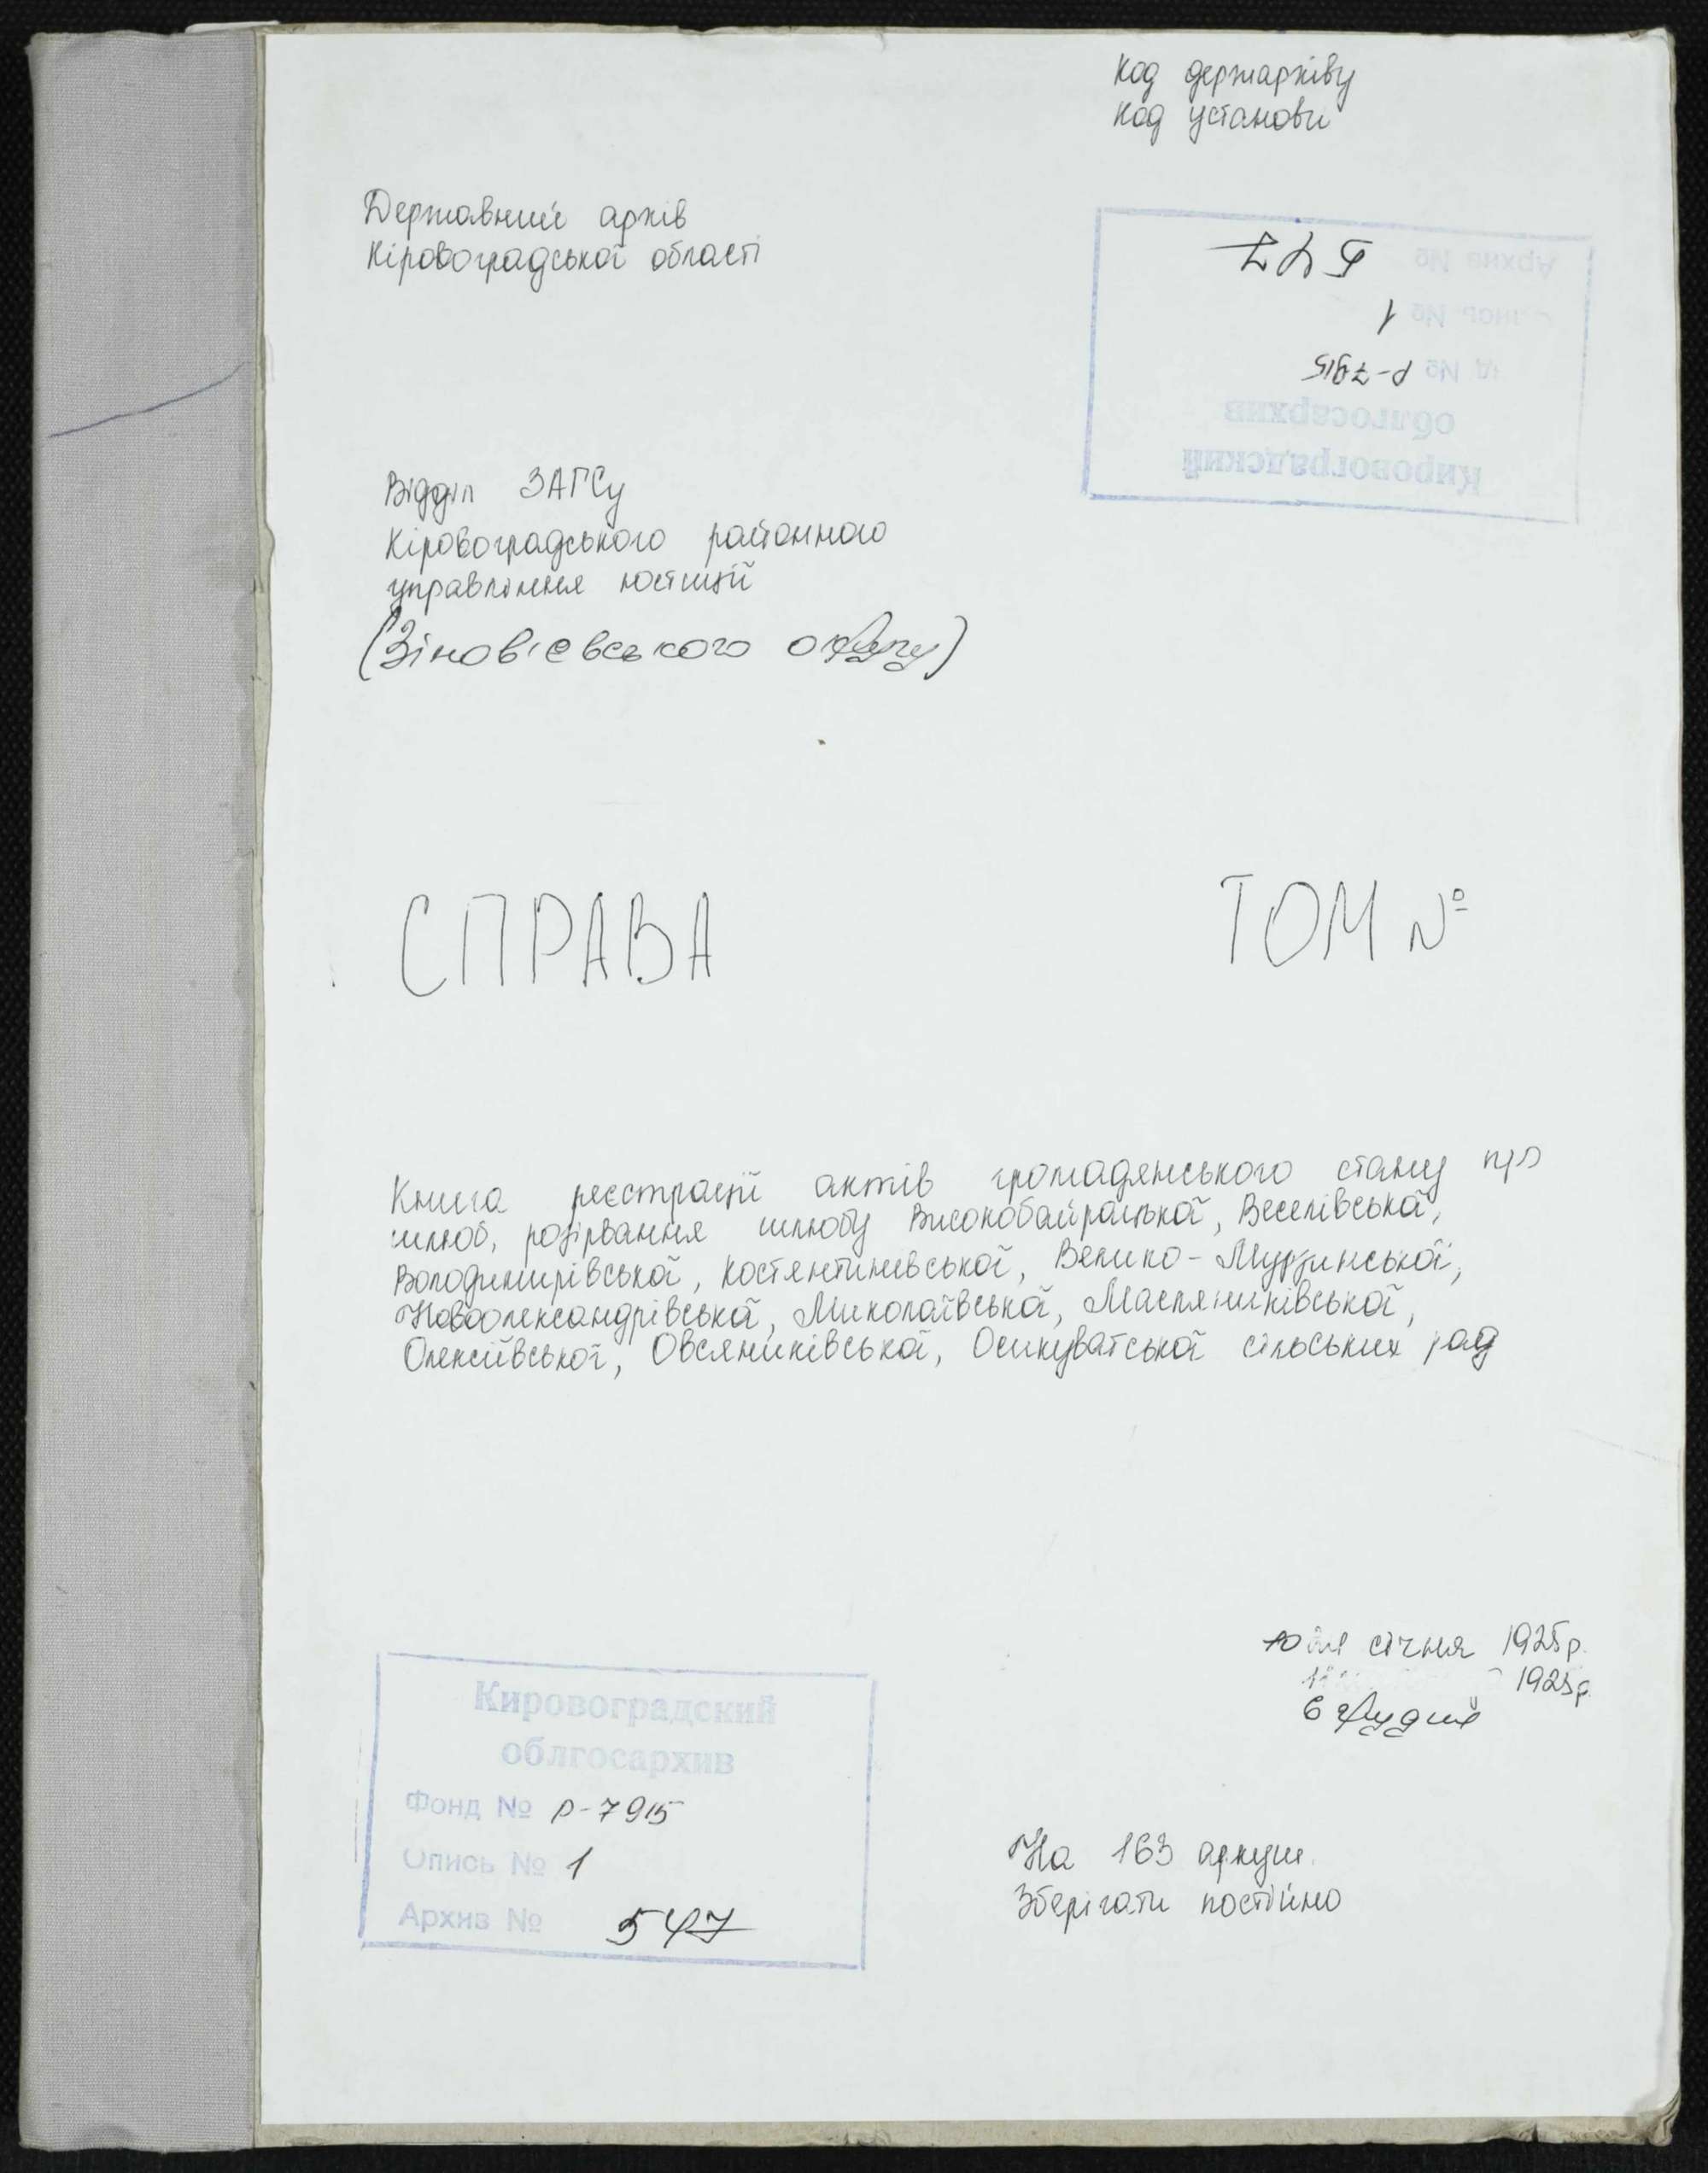 Код держархіву
Код установи
Державний архів
Кіровоградської області
Архив № 547
№ 1
№ Р-7915
облгосархив
Кировоградский
Відділ ЗАГСу
Кіровоградського районного
управління юстиції
(Зінов'євського округу)
СПРАВА
ТОМ №
Книга реєстрації актів громадянського стану про
шлюб, розірвання шлюбу Високобайрацької, Веселівської,
Володимирівської, Костянтинівської, Велико-Мурзинської,
Новоолександрівської, Миколаївської, Масляниківської,
Олексіївської, Овсяниківської, Осикуватської сільських рад
січня 1925р.
1925р.
6 грудня
Кировоградский
облгосархив
Фонд № Р-7915
Опись № 1
Архив № 547
На 163 аркуш.
Зберігати постійно